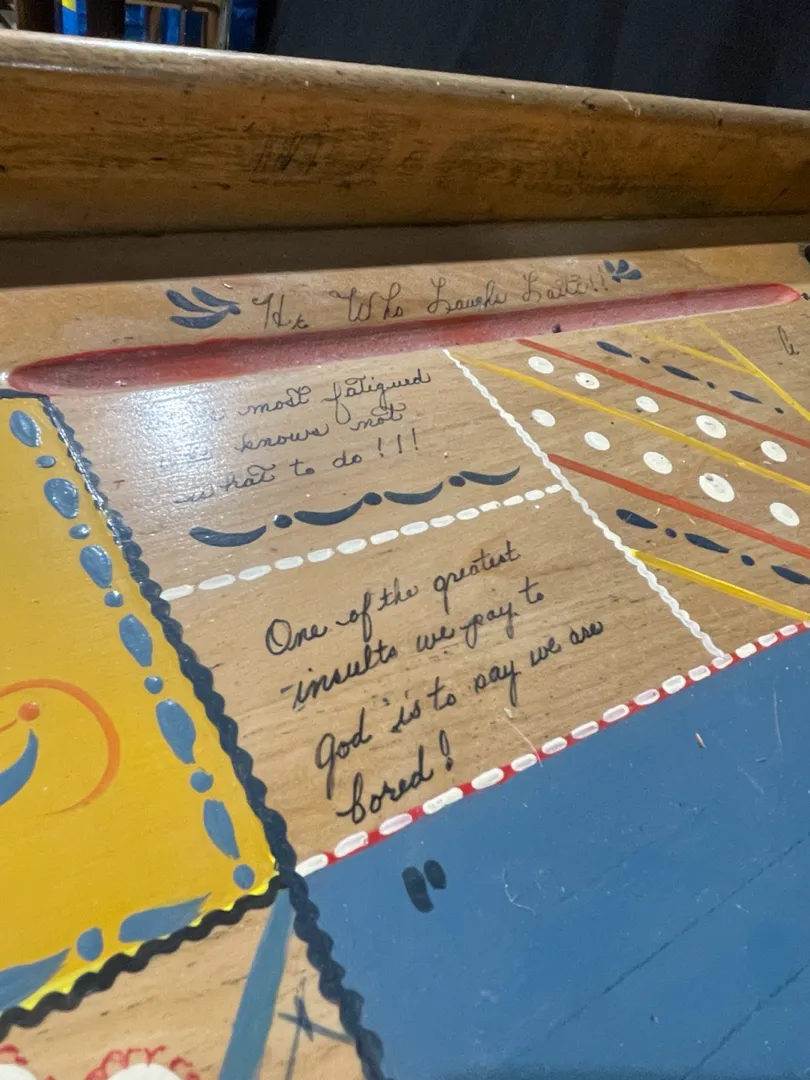 He Who Laughs Lasts!!
most fatigued
knows not
what to do!!!
One of the greatest
insults we pay to
god is to say we are
bored!